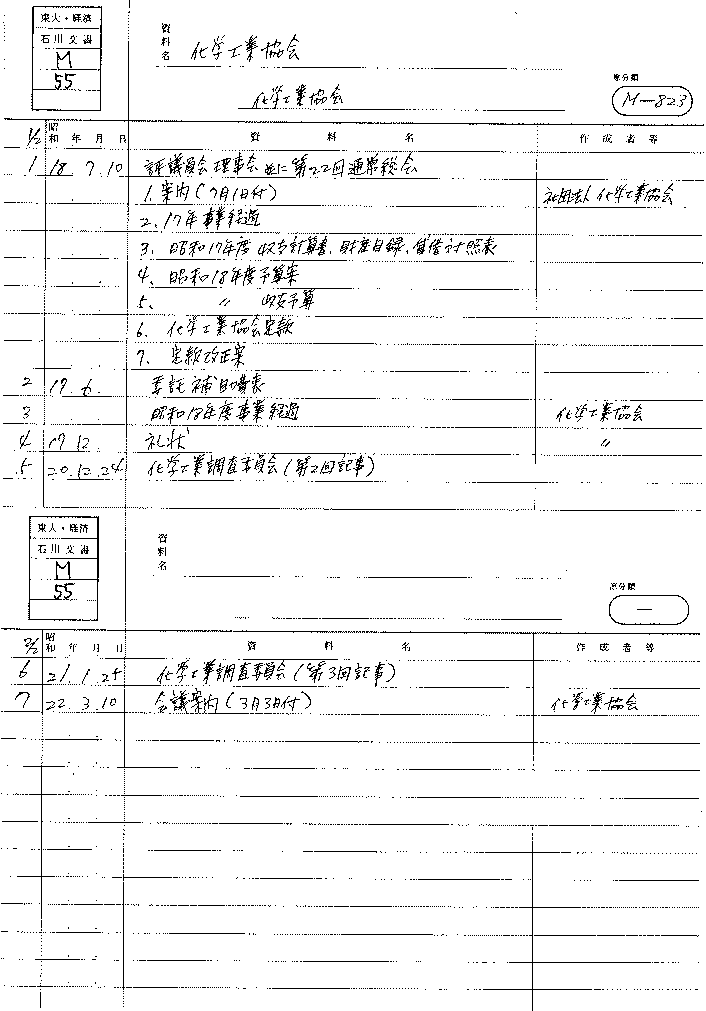 東大・経済
石川文書
M
55
資料名
化学工業協会
化学工業協会
原分類
M-823
1/2 昭和 年 月 日 資料名 作成者等
1 18 7 10 評議員会 理事会 並に第22回通常総会
1. 案内(7月1日付) 社団法人 化学工業協会
2. 17年事業経過
3. 昭和17年度 収支計算書、財産目録、貸借対照表
4. 昭和18年度予算案
5. 〃 収支予算
6. 化学工業協会定款
7. 定款改正案
2 17 6 委託補助費表
3 昭和18年度事業経過 化学工業協会
4 17 12 礼状 〃
5 20.12.24 化学工業調査委員会(第2回記事)
東大・経済
石川文書
M
55
資料名
原分類
—
2/2 昭和 年 月 日 資料名 作成者等
6 21 1 25 化学工業調査委員会(第3回記事)
7 22 3 10 会議案内(3月3日付) 化学工業協会